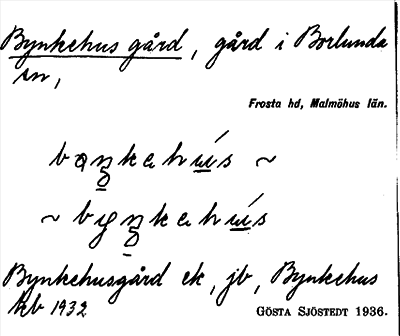 Bynkehus gård, gård i Borlunda
sn,
Frosta hd, Malmöhus län.
bɑŋkahús ~
~ byŋkahús
Bynkehusgård ek, jb, Bynkehus
kb 1932
GÖSTA SJÖSTEDT 1936.